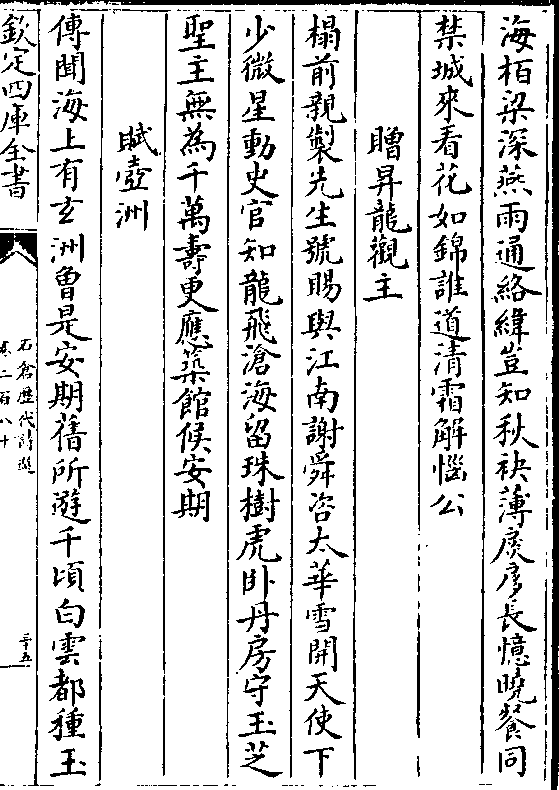 海栢梁深燕雨通絡緯豈知秋袂薄扊扅長憶曉餐同
禁城來看花如錦誰道清霜解惱公
贈昇龍觀主
榻前親製先生號賜與江南謝舜咨太華雪開天使下
少微星動史官知龍飛滄海留珠樹虎卧丹房守玉芝
聖主無為千萬壽更應築館候安期
賦壺洲
傳聞海上有玄洲曾是安期舊所遊千頃白雲都種玉
欽定四庫全書
石倉歷代詩選
卷二百八十
三十五